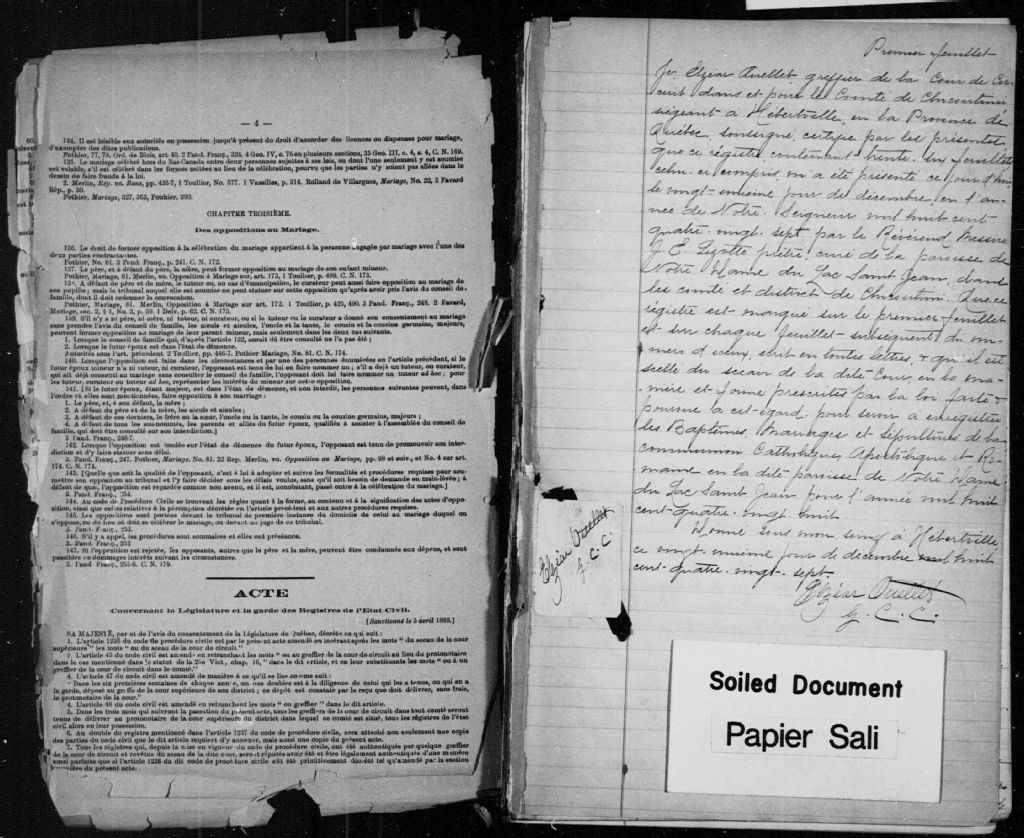 — 4 —
134. Il est loisible aux autorités en possession jusqu'à présent du droit d'accorder des licences ou dispenses pour mariage,
d'exempter des dites publications.
Pothier, 77, 78. Ord. de Blois, art. 40. 2 Pand. Franç., 324. 4 Geo. IV, c. 76 en plusieurs sections, 35 Geo. III, c. 4, s. 4, C. N. 169.
135. Le mariage célébré hors du Bas-Canada entre deux personnes sujettes à ses lois, ou dont l'une seulement y est soumise
est valable, s'il est célébré dans les formes usitées au lieu de la célébration, pourvu que les parties n'y soient pas allées dans le
dessein de faire fraude à la loi.
2. Merlin, Rép. vo. Bans, pp. 436-7, 1 Toullier, No. 577. 1 Vaseilles, p. 314. Rolland de Villargues, Mariage, No. 22, 3 Favard
Rép., p. 30.
Pothier, Mariage, 327, 363, Pouhier, 390.
CHAPITRE TROISIÈME.
Des oppositions au Mariage.
136. Le droit de former opposition à la célébration du mariage appartient à la personne engagée par mariage avec l'une des
deux parties contractantes.
Pothier, No. 81. 3 Pand. Franç., p. 241. C. N. 172.
137. Le père, et à défaut du père, la mère, peut former opposition au mariage de son enfant mineur.
Pothier, Mariage, 81. Merlin, vo. Opposition à Mariage sur art. 173, 1 Toullier, p. 489. C. N. 173.
A défaut de père et de mère, le tuteur ou, au cas d'émancipation, le curateur peut aussi faire opposition au mariage de
son pupille; mais le tribunal auquel elle est soumise ne peut statuer sur cette opposition qu'après avoir pris l'avis du conseil de
famille, dont il doit ordonner la convocation.
Pothier, Mariage, 81. Merlin, Opposition à Mariage sur art. 172. 1 Toullier, p. 425, 490. 3 Pand. Franç., 248. 2 Favard,
Mariage, sec. 2, § 1, No. 3, p. 59. 1 Delv. p. 62. C. N. 175.
139. S'il n'y a ni père, ni mère, ni tuteur, ni curateur, ou si le tuteur ou le curateur a donné son consentement au mariage
sans prendre l'avis du conseil de famille, les aïeuls et aïeules, l'oncle et la tante, le cousin et la cousine germains, majeurs,
peuvent former opposition au mariage de leur parent mineur, mais seulement dans les deux cas suivants.
1. Lorsque le conseil de famille qui, d'après l'article 122, aurait dû être consulté ne l'a pas été;
2. Lorsque le futur époux est dans l'état de démence.
Autorités sous l'art. précédent. 2 Toullier, pp. 446-7. Pothier Mariage, No. 81. C. N. 174.
140. Lorsque l'opposition est faite dans les circonstances et par une des personnes énumérées en l'article précédent, si le
futur époux mineur n'a ni tuteur, ni curateur, l'opposant est tenu de lui en faire nommer un; s'il a déjà un tuteur, ou curateur,
qui ait déjà consenti au mariage sans consulter le conseil de famille, l'opposant doit lui faire nommer un tuteur ad hoc; pour
les tuteur, curateur ou tuteur ad hoc, représenter les intérêts du mineur sur cette opposition.
141. [Si le futur époux, étant majeur, est dans l'état de démence, et non interdit, les personnes suivantes peuvent, dans
l'ordre où elles sont mentionnées, faire opposition à son mariage:
1. Le père, et, à son défaut, la mère;
2. A défaut du père et de la mère, les aïeuls et aïeules;
3. A défaut de ces derniers, le frère ou la sœur, l'oncle ou la tante, le cousin ou la cousine germains, majeurs;
4. A défaut de tous les sus-nommés, les parents et alliés du futur époux, qualifiés à assister à l'assemblée du conseil de
famille, qui doit être consulté sur son interdiction.]
3 Pand. Franç., 246-7.
142. Lorsque l'opposition est fondée sur l'état de démence du futur époux, l'opposant est tenu de promouvoir son inter-
diction et d'y faire statuer sans délai.
3. Pand. Franç., 247. Pothier, Mariage, No. 81. 22 Rep. Merlin, vo. Opposition au Mariage, pp. 98 et suiv., et No. 4 sur art.
174. C. N. 174.
143. [Quelle que soit la qualité de l'opposant, c'est à lui à adopter et suivre les formalités et procédures requises pour sou-
mettre son opposition au tribunal et l'y faire décider sous les délais voulus, sans qu'il soit besoin de demande en main-levée; à
défaut de quoi, l'opposition est regardée comme non avenu, et il est, nonobstant, passé outre à la célébration du mariage.]
3. Pand. Franç., 254.
144. Au code de Procédure Civile se trouvent les règles quant à la forme, au contenu et à la signification des actes d'oppo-
sition, ainsi que celles relatives à la péremption décrétée en l'article précédent et aux autres procédures requises.
145. Les oppositions sont portées devant le tribunal de première instance du domicile de celui au mariage duquel on
s'oppose, ou du lieu où doit se célébrer le mariage, ou devant un juge de ce tribunal.
3. Pand. Franç., 253.
146. S'il y a appel, les procédures sont sommaires et elles ont préséance.
3. Pand. Franç. 253
147. Si l'opposition est rejetée, les opposants, autres que le père et la mère, peuvent être condamnés aux dépens, et sont
passibles de dommages intérêts suivant les circonstances.
3. Pand. Franç., 255-6. C. N. 179.
ACTE
Concernant la Législature et la garde des Registres de l'Etat Civil.
[Sanctionné le 5 avril 1869.]
SA MAJESTÉ, par et de l'avis du consentement de la Législature de Québec, décrète ce qui suit:
1. L'article 1236 du code de procédure civile est par le présent acte amendé en insérant après les mots "du sceau de la cour
supérieure" les mots "ou du sceau de la cour de circuit."
2. L'article 45 du code civil est amendé en retranchant les mots "ou au greffier de la cour de circuit au lieu du protonotaire
dans le cas mentionné dans le statut de la 25e Vict., chap. 16," dans le dit article, et en leur substituants les mots "ou à un
greffier de la cour de circuit dans le comté."
4. L'article 47 du code civil est amendé de manière à ce qu'il se lise comme suit:
"Dans les six premières semaines de chaque année, un des doubles est à la diligence de celui qui les a tenus, ou qui en a
la garde, déposé au greffe de la cour supérieure de son district; ce dépôt est constaté par le reçu que doit délivrer, sans frais,
le protonotaire de la cour."
4. L'article 48 du code civil est amendé en retranchant les mots "ou greffier" dans le dit article.
5. Dans les trois mois qui suivront la passation du présent acte, tous les greffiers de la cour de circuit dans tout comté seront
tenus de délivrer au protonotaire de la cour supérieure du district dans lequel ce comté est situé, tous les registres de l'état
civil alors en leur possession.
6. Au double du registre mentionné dans l'article 1237 du code de procédure civile, sera attaché non seulement une copie
des parties du code civil que le dit article requiert d'y annexer, mais aussi une copie du présent acte.
7. Tous les registres qui, depuis la mise en vigueur du code de procédure civile, ont été authentiqués par quelque greffier
de la cour de circuit et revêtus du sceau de la dite cour, seront réputés avoir été et être légalement authentiqués d'une manière
aussi parfaite que si l'article 1236 du dit code de procédure civile eût été primitivement décrété tel qu'amendé par la section
première du présent acte.
Premier feuillet
Je, Elzéar Ouellet greffier de la Cour de Cir-
cuit dans et pour le Comté de Chicoutimi
siégeant à Hébertville, en la Province de
Québec, soussigné, certifie par les présentes
que ce régistre contenant trente-six feuillets
celui-ci compris, m'a été présenté ce jour d'hui
le vingt-unième jour de décembre en l'an-
née de Notre-Seigneur mil huit cent
quatre-vingt-sept par le Révérend Messire
J. E. Lizotte prêtre, curé de la paroisse de
Notre Dame du Lac Saint Jean, dans
les comté et district de Chicoutimi. Que ce
régistre est marqué sur le premier feuillet
et sur chaque feuillet subséquent du nu-
méro d'iceux, écrit en toutes lettres, & qu'il est
scellé du sceau de la dite Cour, en la ma-
nière et forme prescrites par la loi faite &
pourvue à cet égard, pour servir à enregistrer
les Baptêmes, Mariages et Sépultures de la
communion Catholique, Apostolique et Ro-
maine en la dite paroisse de Notre Dame
du Lac Saint Jean pour l'année mil huit
cent-quatre-vingt-huit.
Donné sous mon seing à Hébertville,
ce vingt-unième jour de décembre mil huit
cent-quatre-vingt-sept.
Elzéar Ouellet
G. C. C.
Elzéar Ouellet
G. C. C.
Soiled Document
Papier Sali